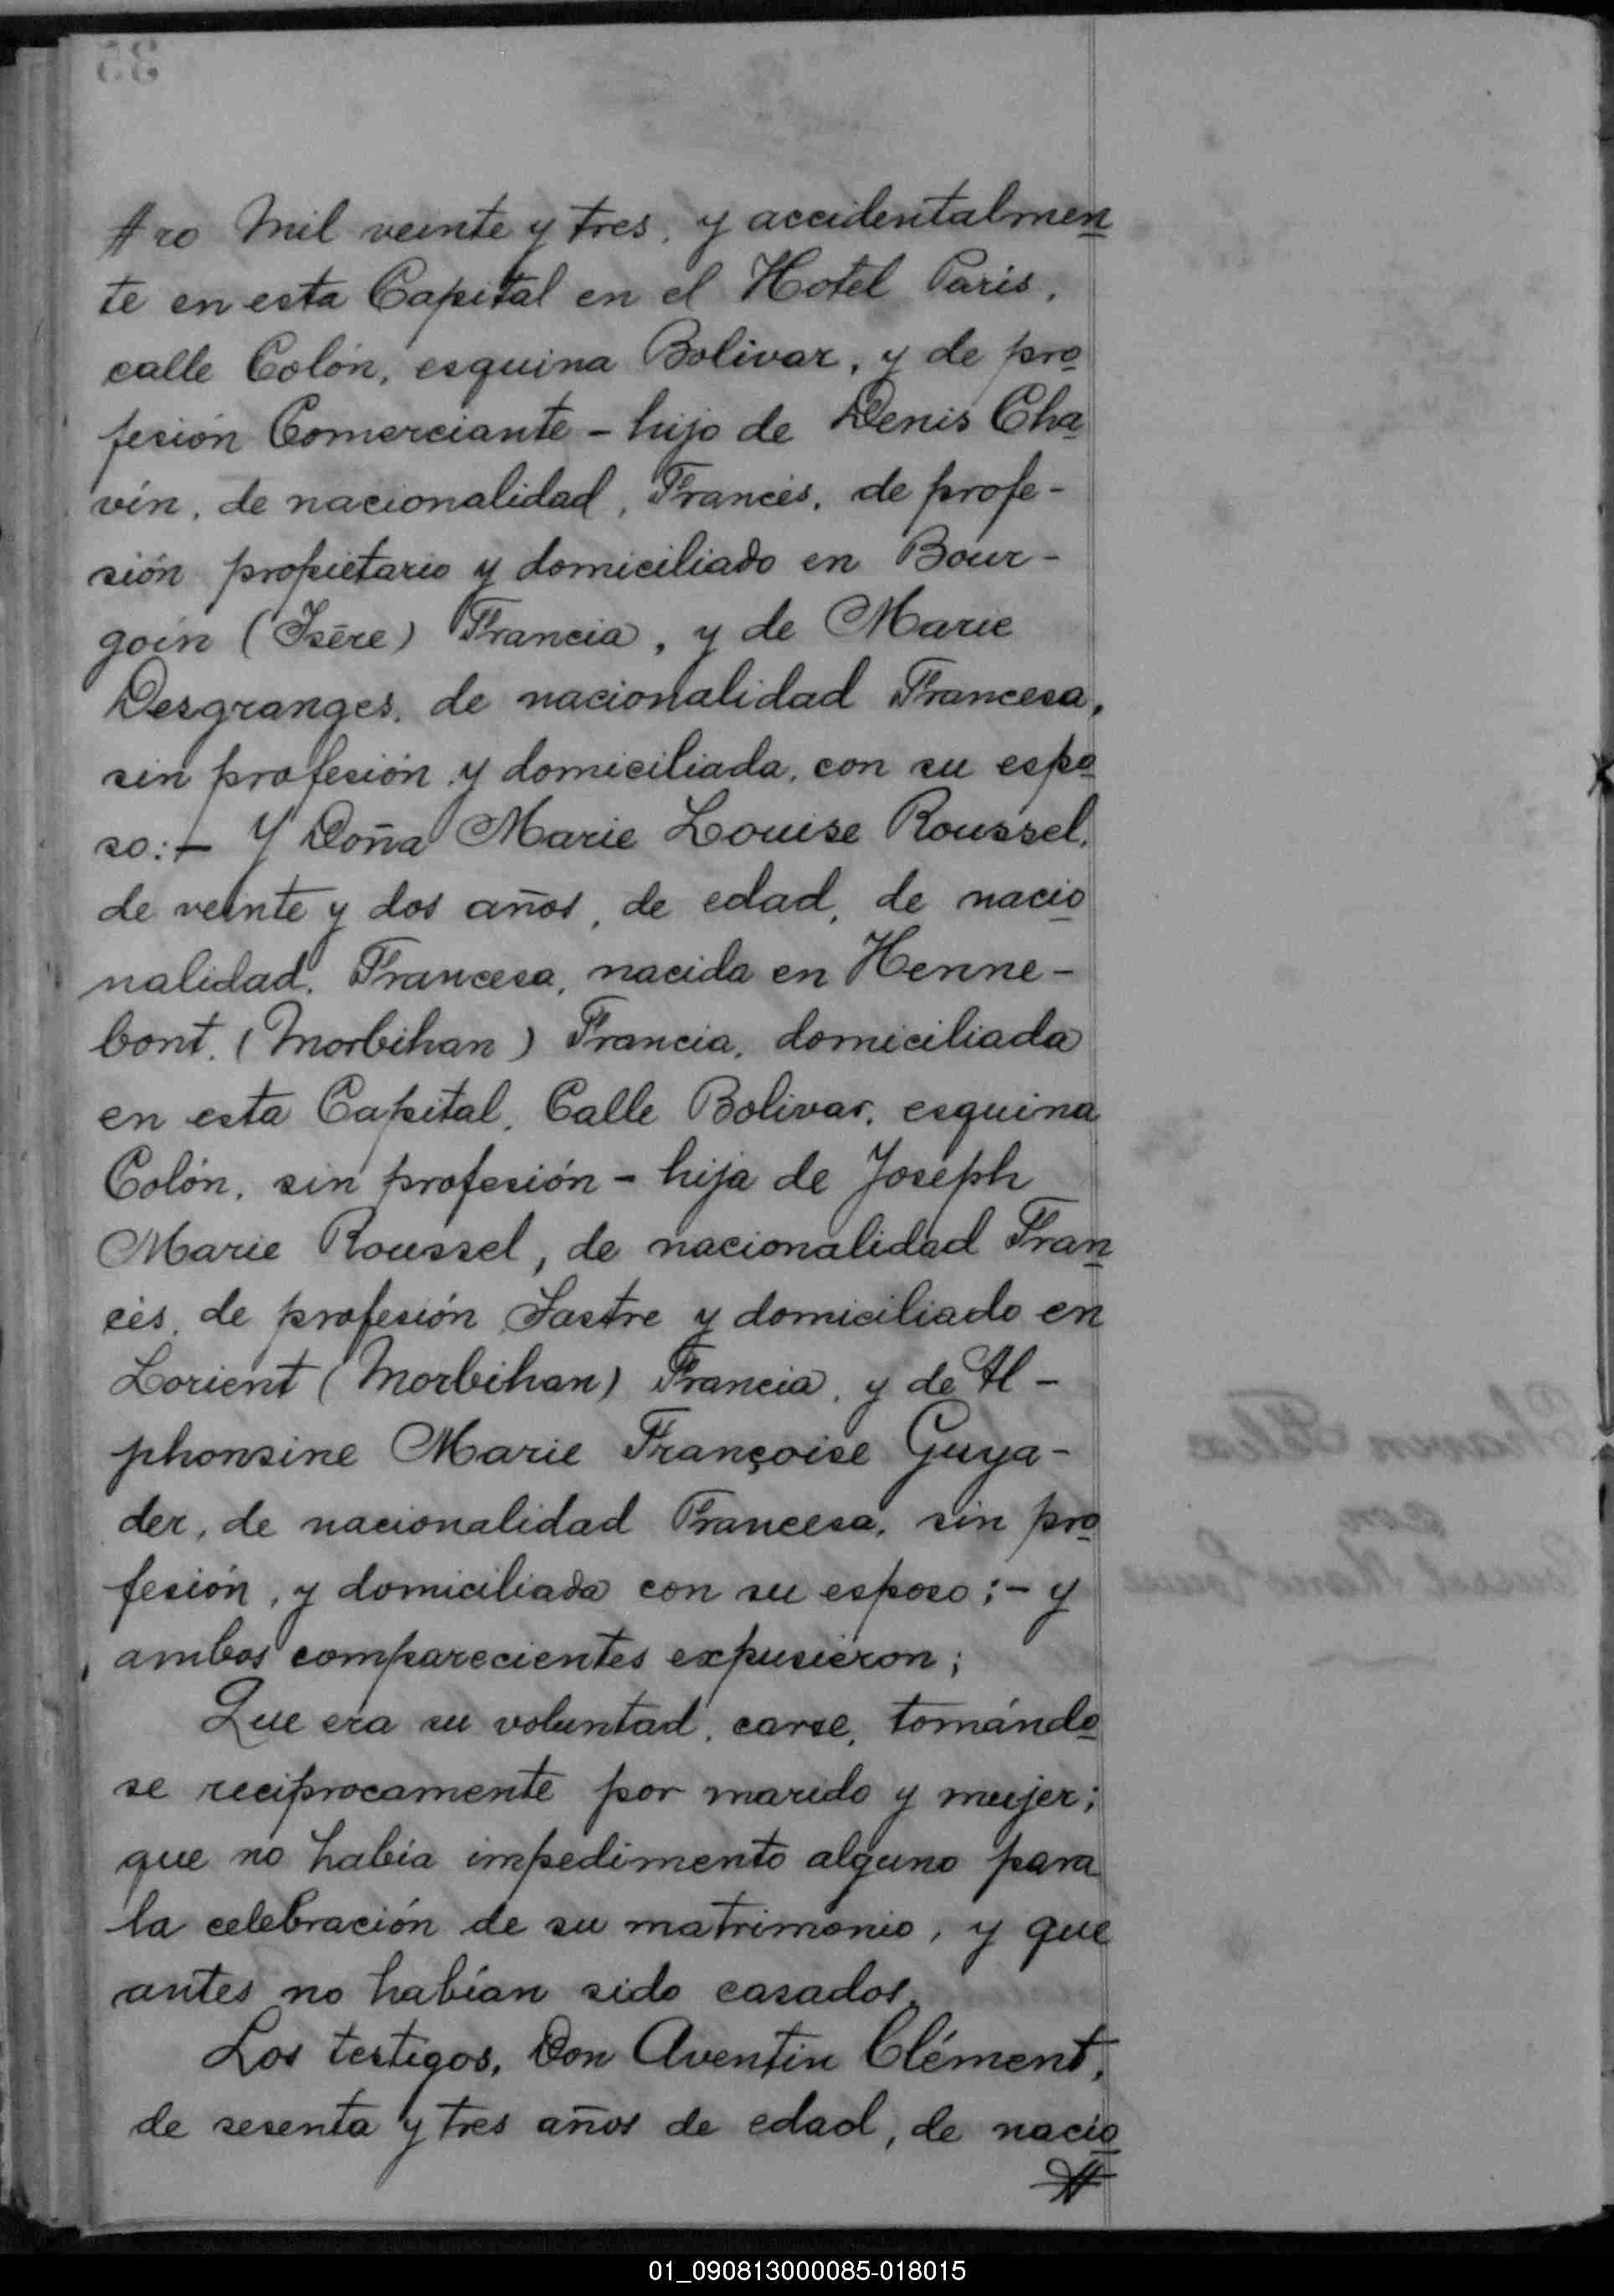 #ro Mil veinte y tres, y accidentalmen
te en esta Capital en el Hotel Paris,
calle Colón, esquina Bolivar, y de pro
fesión Comerciante – hijo de Denis Cha
vin, de nacionalidad, Francés, de profe-
sión propietario y domiciliado en Bour-
goin (Isère) Francia, y de Marie
Desgranges, de nacionalidad Francesa,
sin profesión y domiciliada, con su espo
so:– Y Doña Marie Louise Roussel,
de veinte y dos años, de edad, de nacio
nalidad, Francesa, nacida en Henne-
bont, (Morbihan) Francia, domiciliada
en esta Capital, Calle Bolivar, esquina
Colón, sin profesión – hija de Joseph
Marie Roussel, de nacionalidad Fran
cés, de profesión Sastre y domiciliado en
Lorient (Morbihan) Francia, y de Al-
phonsine Marie Françoise Guya-
der, de nacionalidad Francesa, sin pro
fesión, y domiciliada con su esposo;– y
ambos comparecientes expusieron;
Que era su voluntad, carse, tomándo
se reciprocamente por marido y mujer;
que no había impedimento alguno para
la celebración de su matrimonio, y que
antes no habían sido casados.
Los testigos, Don Aventin Clément,
de sesenta y tres años de edad, de nacio
#
01_090813000085-018015